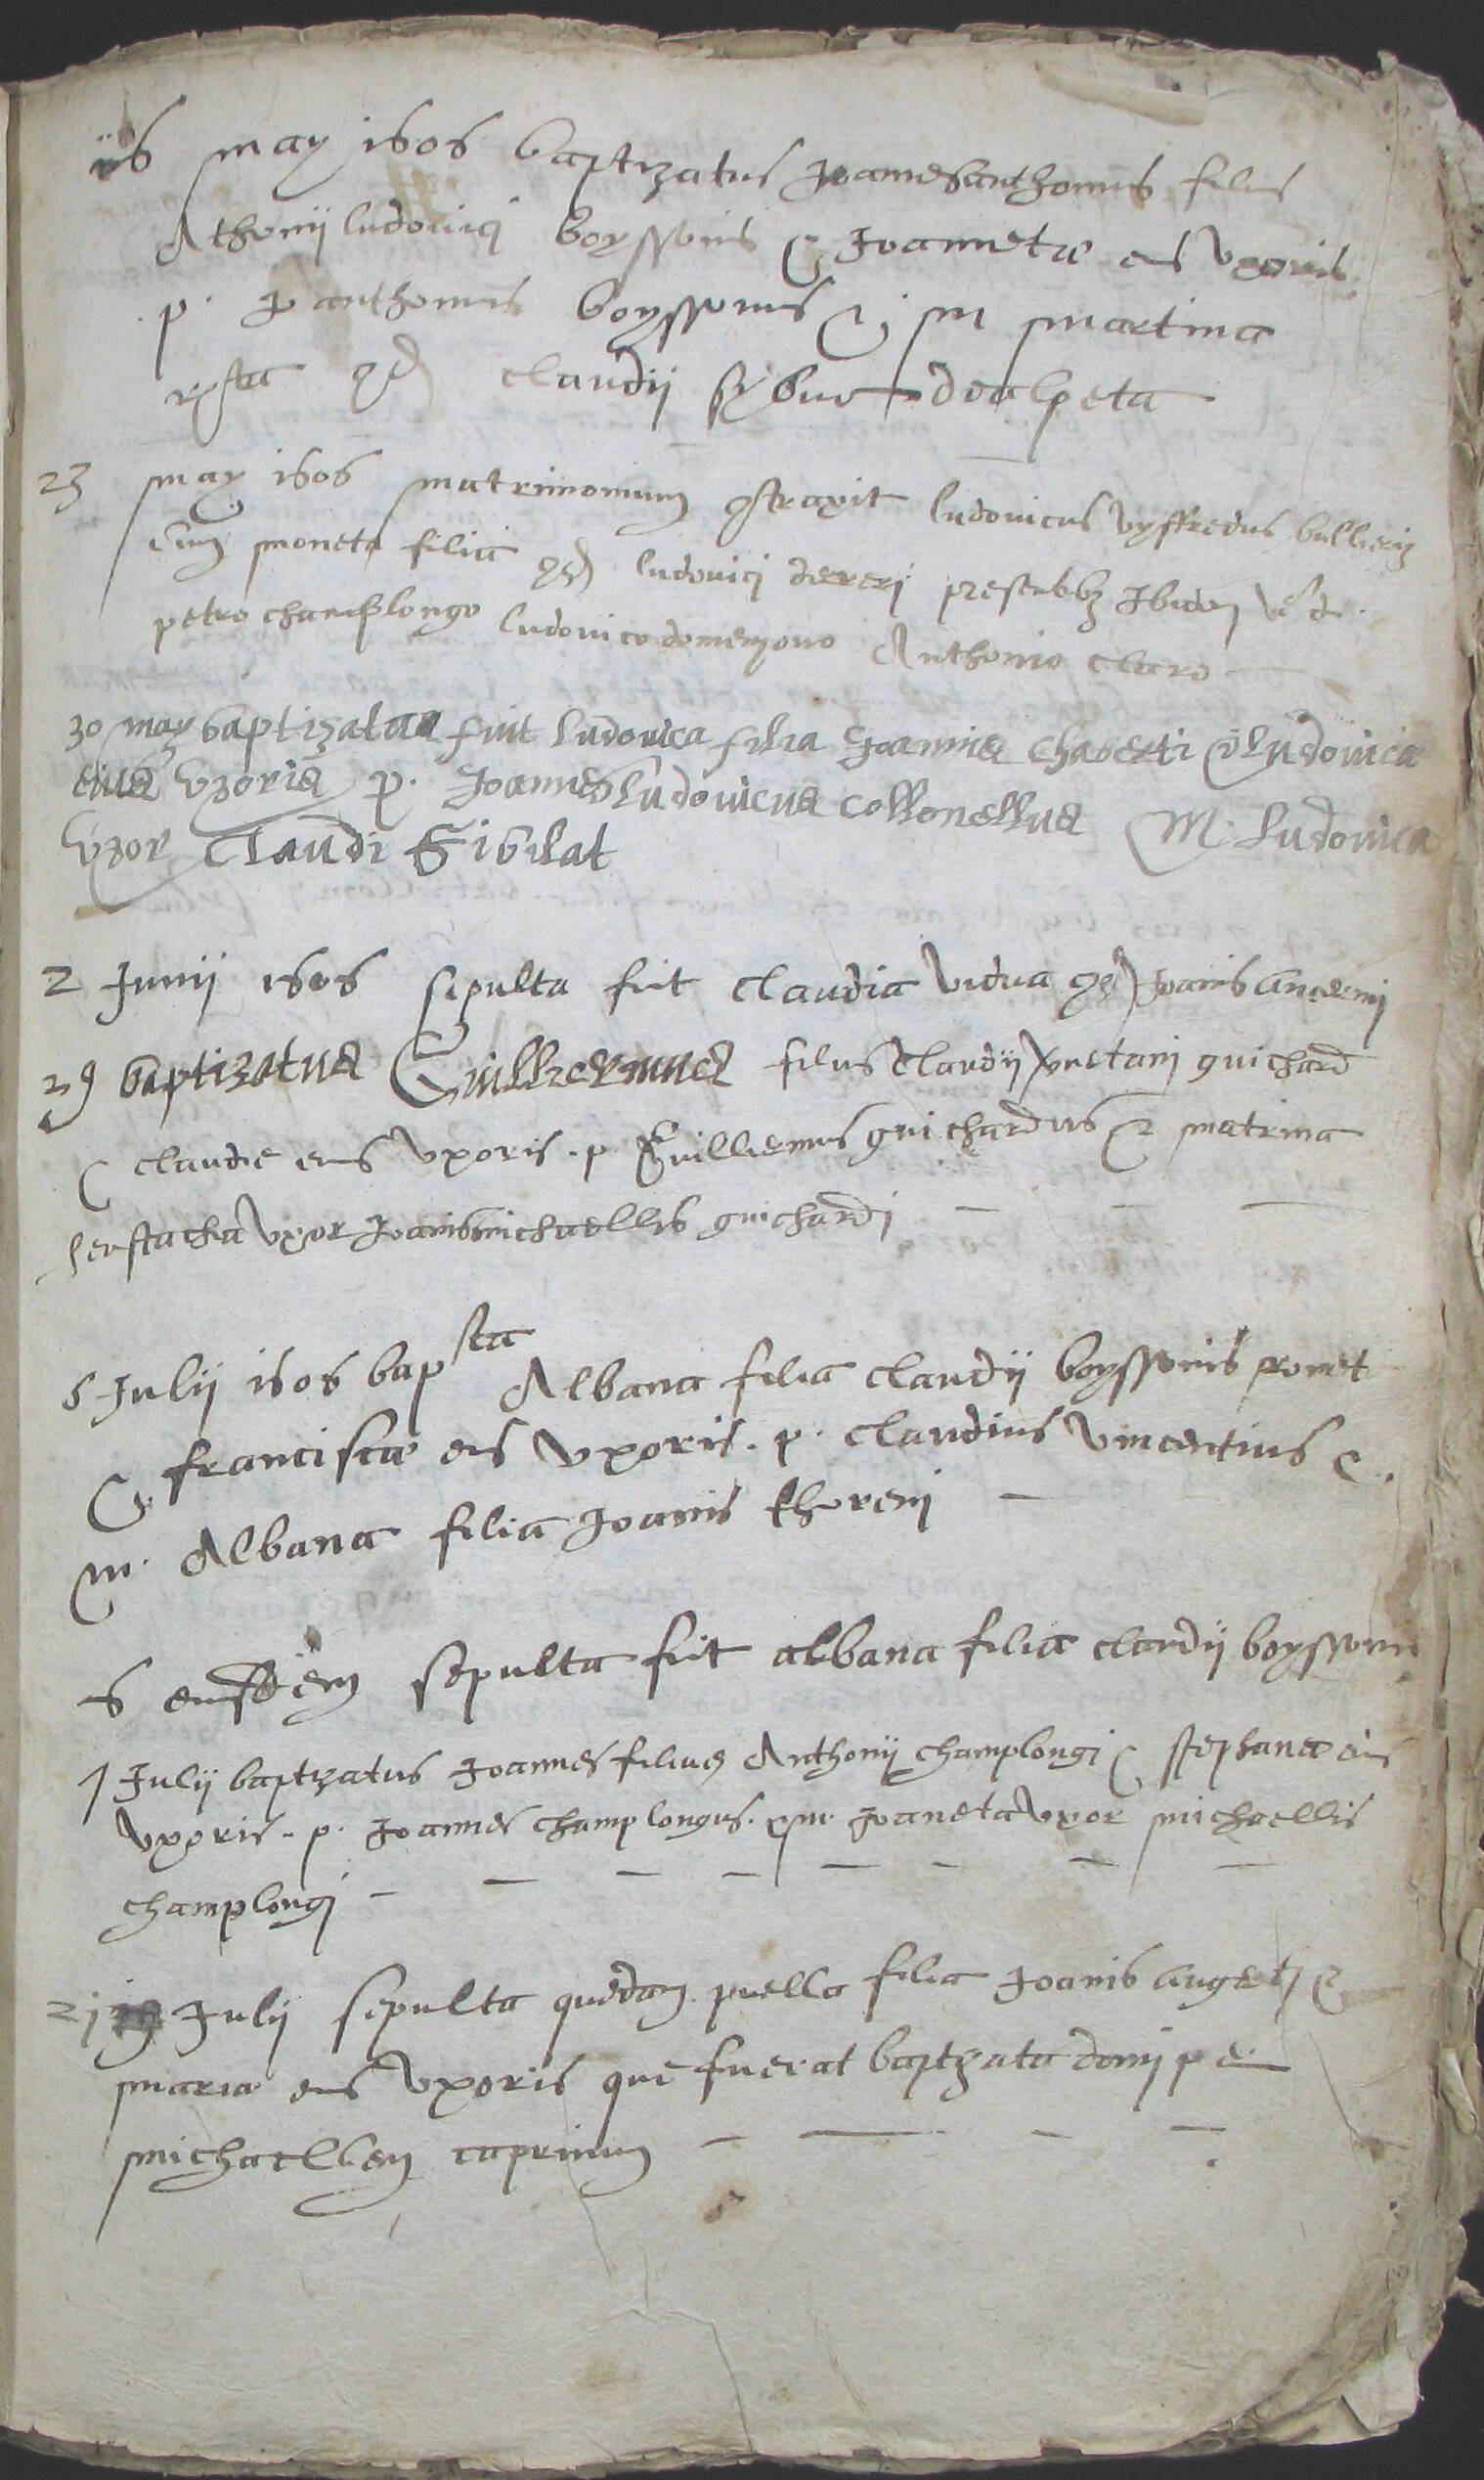 may 1605 baptizatus Joanesanthonius filius
Athonij ludovici boyssonis & Joannetæ eius uxoris
p. Jo anthonius boyssonus & m martina
rsta qd claudij
23 may 1605 matrimonium ɔtraxit ludovicus vyffredus
cum moneta filia qd ludovici derrerj presentibz Ibidem
petro champlongo ludovico domenzono Anthonio claro
30 may baptizata fuit ludovica filia Joannis chaberti & ludovica
eius uxoris p. Joannes ludovicus collonellus M. ludovica
uxor claudi Sibilat
2 Junij 1605 sepulta fuit claudia vidua qd Joanis
29 baptizatus Guillzermus filius claudij guichard
& claudie eius uxoris. p Guillermus guichardus & matrina
eustacha uxor Joanis michaellis guichardi
5 Julij 1605 bapsta Albana filia claudij boyssonis
& franciscæ eius uxoris. p. claudius vincentius &
m. Albana filia Joanis thorenj
5 eiusdem sepulta fuit albana filia claudij boyssonis
Julij baptizatus Joannes filius Anthonij champlongi & stephanæ eius
uxoris. p. Joannes champlongus. & m. Joaneta uxor michaellis
champlongi
21 Julij sepulta quedam puella filia Joanis &
mariæ eius uxoris que fuerat baptizata domj per
michaellem caprinum